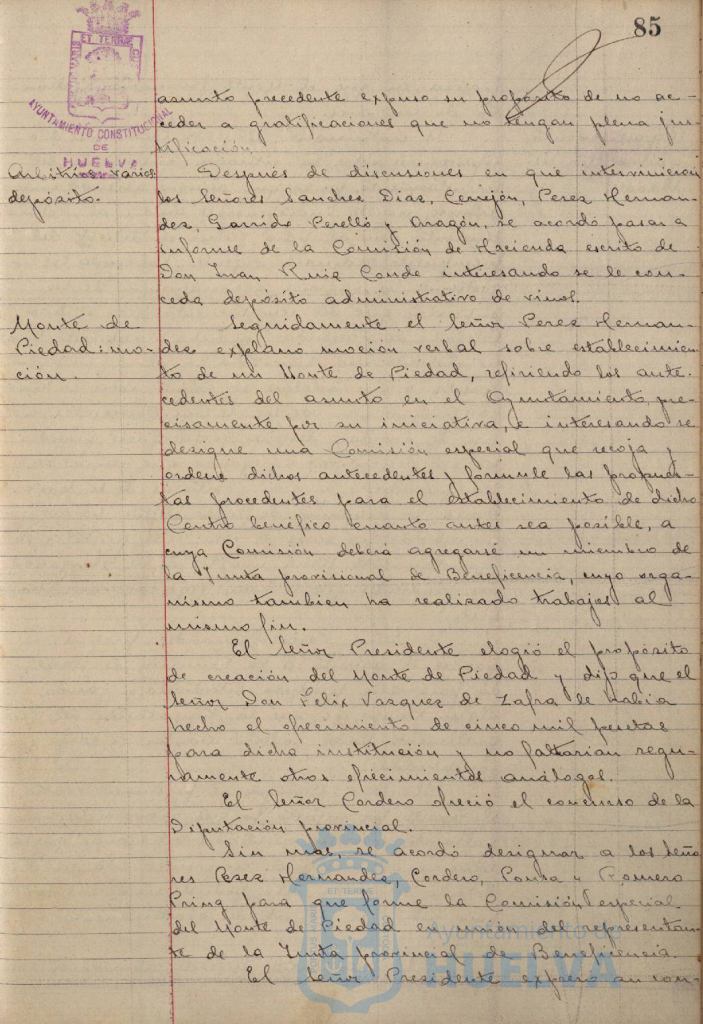 85
PORTUS MARIS ET TERRÆ CUSTODIA
AYUNTAMIENTO CONSTITUCIONAL
DE
HUELVA
asunto precedente expuso su propósito de no ac-
ceder a gratificaciones que no tengan plena jus-
tificación.
Arbitrios varios:
depósito.
Después de discusiones en que intervinieron
los Señores Sanchez Diaz, Cerrejón, Perez Hernan-
dez, Garrido Perelló y Aragón, se acordó pasar a
informe de la Comisión de Hacienda escrito de
Don Juan Ruiz Conde interesando se le con-
ceda depósito administrativo de vinos.
Monte de
Piedad: mo-
ción.
Seguidamente el Señor Perez Hernan-
dez explanó moción verbal sobre establecimien-
to de un Monte de Piedad, refiriendo los ante-
cedentes del asunto en el Ayuntamiento, pre-
cisamente por su iniciativa, e interesando se
designe una Comisión especial que recoja y
ordene dichos antecedentes y formule las propues-
tas procedentes para el establecimiento de dicho
Centro benéfico cuanto antes sea posible, a
cuya Comisión deberá agregarse un miembro de
la Junta provisional de Beneficencia, cuyo orga-
nismo tambien ha realizado trabajos al
mismo fin.
El Señor Presidente elogió el propósito
de creación del Monte de Piedad y dijo que el
Señor Don Felix Vazquez de Zafra le habia
hecho el ofrecimiento de cinco mil pesetas
para dicha institución y no faltarian segu-
ramente otros ofrecimientos análogos.
El Señor Cordero ofreció el concurso de la
Diputación provincial.
Sin mas, se acordó designar a los Seño-
res Perez Hernandez, Cordero, Ponza y Romero
Pring para que forme la Comisión especial
del Monte de Piedad en unión del representan-
te de la Junta provincial de Beneficencia.
El Señor Presidente expresó su con-
Ayuntamiento
HUELVA